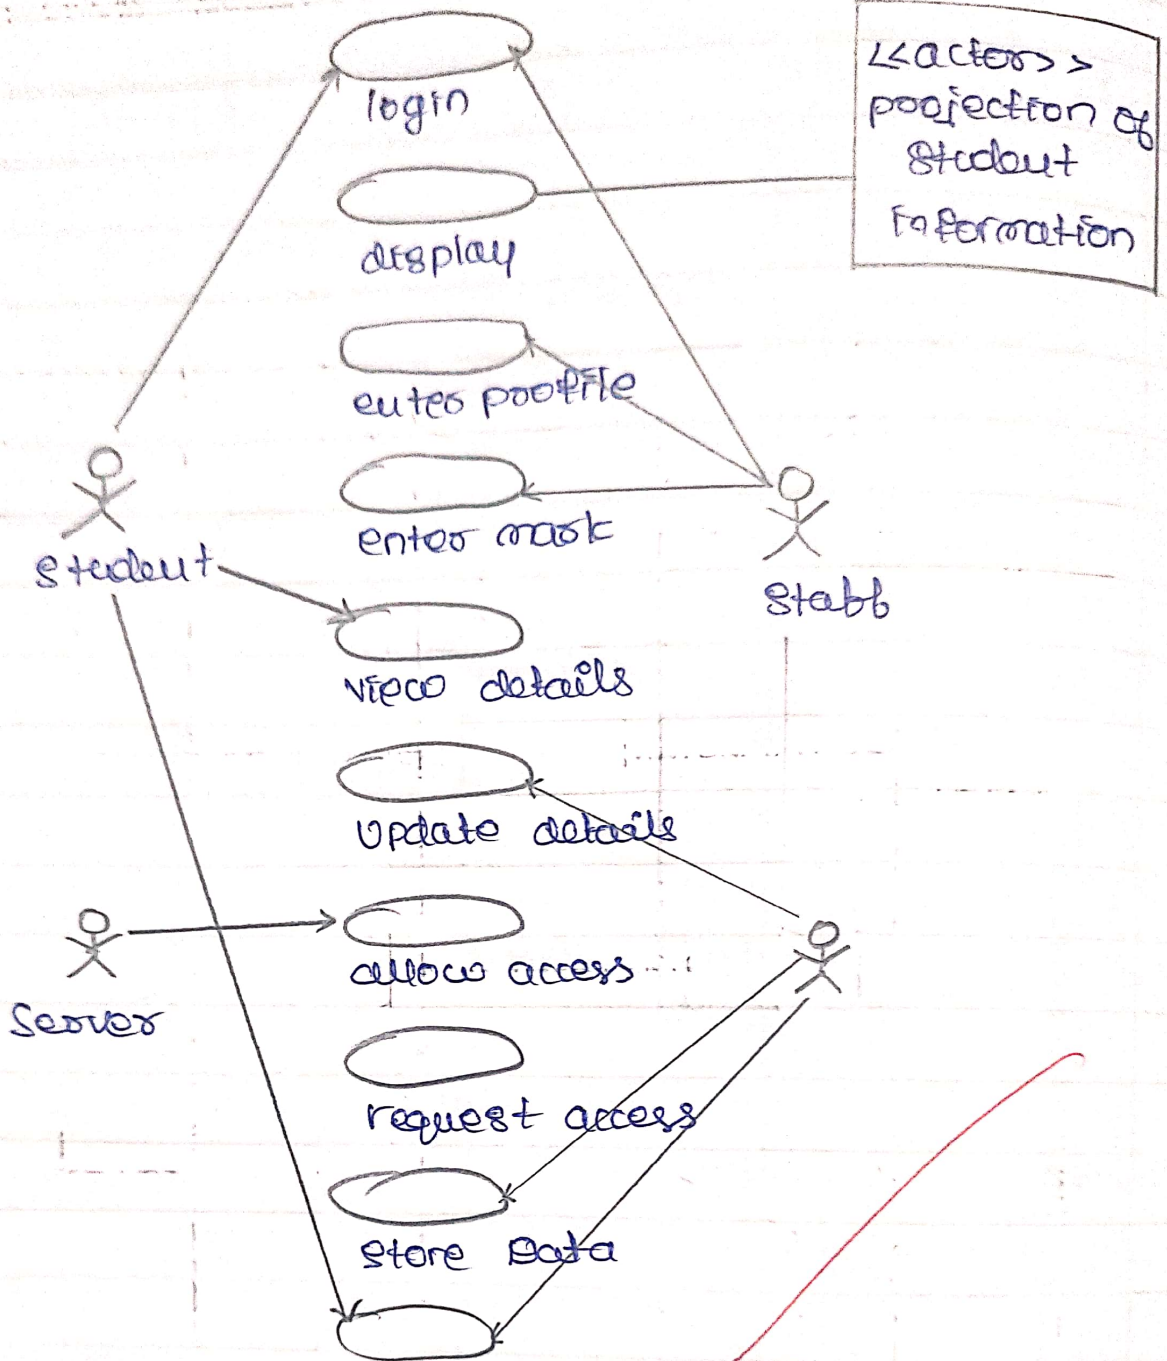 <<actor>>
projection of
Student
Information
login
display
enter profile
enter mark
Student
Staff
view details
Update details
allow access
Server
request access
Store Data